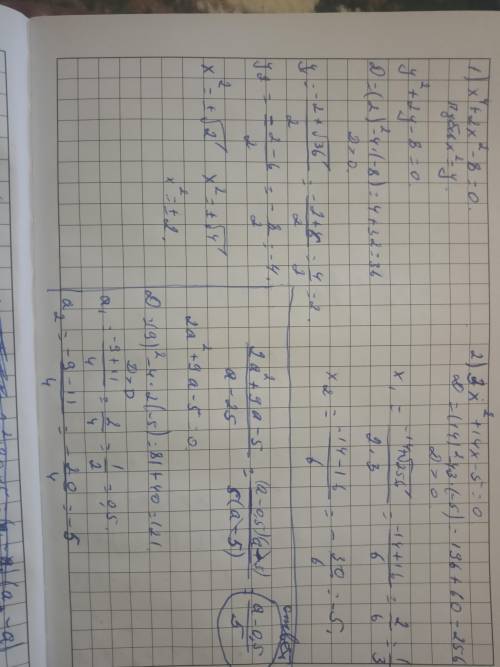 1) x⁴+2x²-8=0.
Пусть x²=y.
y²+2y-8=0.
D=(2)²-4·(-8)=4+32=36
D>0.
y = (-2+√36)/2 = (-2+6)/2 = 4/2 = 2.
y₂ = (-2-6)/2 = -8/2 = -4.
x²=±√2 x²=±√4
x²=±2.
2) 3x²+14x-5=0
D=(14)²-4·3·(-5)=196+60=256
D>0
x₁ = (-14+√256)/2·3 = (-14+16)/6 = 2/6 = 1/3
x₂ = (-14-16)/6 = -30/6 = -5.
(2a²+9a-5)/(a-25) = (a-0,5)(a+5)/5(a-5) (a-0,5)/5
ответ
2a²+9a-5=0
D=(9)²-4·2(-5)=81+40=121.
D>0
a₁ = (-9+11)/4 = 2/4 = 1/2 = 0,5.
a₂ = (-9-11)/4 = -20/4 = -5